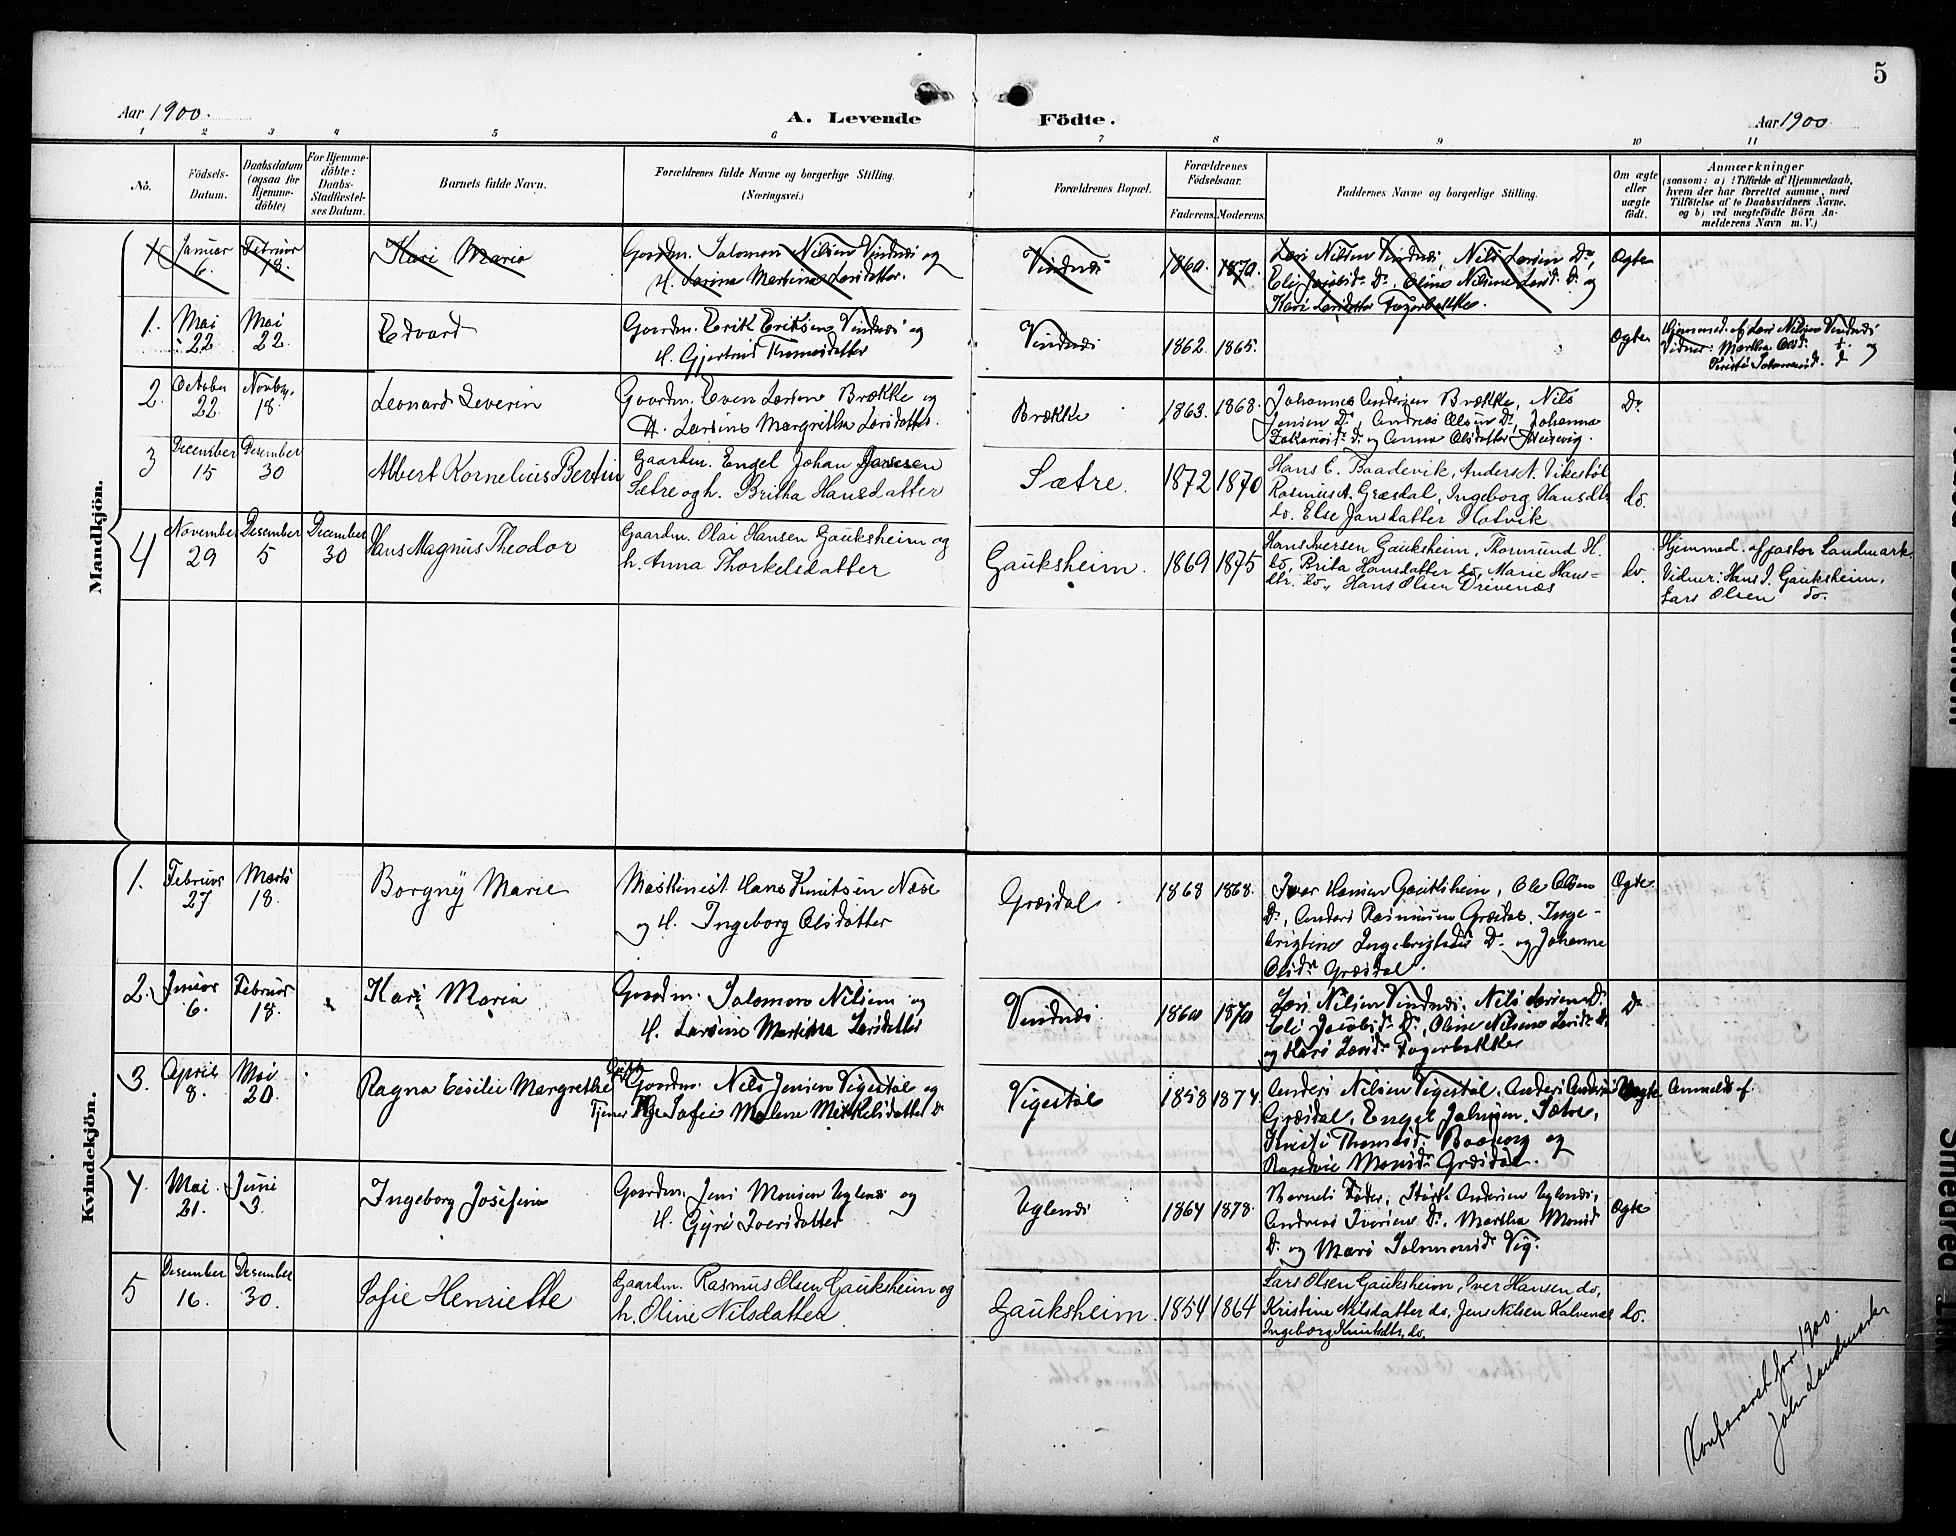 5
Aar 1900.
A. Levende Födte.
Aar 1900
1 2 3 4 5 6 7 8 9 10 11
No.
Födsels-
Datum.
Daabsdatum
(ogsaa for
Hjemme-
döbte)
For Hjemme-
döbte:
Daabs-
Stadfæstel-
ses Datum.
Barnets fulde Navn.
Forældrenes fulde Navne og borgerlige Stilling.
(Næringsvei.)
Forældrenes Bopæl.
Forældrenes
Födselsaar.
Faderens. Moderens.
Faddernes Navne og borgerlige Stilling.
Om ægte
eller
uægte
födt.
Anmærkninger
(saasom: a) i Tilfælde af Hjemmedaab,
hvem der har forrettet samme, med
Tilföielse af to Daabsvidners Navne.
og b) ved uægtefödte Börn An-
melderens Navn m. V.)
Mandkjön.
1 Januar 6. Februar 18. Kari Maria
Gaardm. Salomon Nilsen Vindnæs og
H. Larsine Martina Larsdatter.
Vindnæs 1860. 1870.
Lars Nilsen Vindnæs, Nils Larsen Do,
Eli Jacobsdr. Do, Oline Nilsine Larsd. D. og
Kari Larsdatter Fagerbakke.
Ægte
1. Mai 22 Mai 22. Edvard
Gaardm. Erik Eriksen Vindnæs og
H. Gjertrud Thomasdatter
Vindnæs 1862. 1865.
Ægte
Hjemmed. af Lars Nilsen Vindnæs
Vidner: Martha Olsd. og
Salomonsd.
2. October 22 Novbr. 18. Leonard Severin
Gaardm. Even Larsen Brække og
H. Larsine Margrethe Larsdatter.
Brække 1863. 1868.
Johannes Andersen Brække, Nils
Jensen Do, Andreas Olsen Do, Johanna
Zakariasdr. Do og Anna Olsdatter
Do
3 December 15 Desember 30 Albert Kornelius Bertin
Gaardm. Engel Johan Jansen
Sætre og h. Britha Hansdatter
Sætre. 1872 1870
Hans C. Baadevik, Anders N. Vikestöl
Rasmus A. Græsdal, Ingeborg Hansdtr.
do. Else Jansdatter Hotvik
do.
4 November 29 Desember 5 December 30 Hans Magnus Theodor
Gaardm. Olai Hansen Gauksheim og
h. Anna Thorkelsdatter
Gauksheim. 1869 1875
Hans Iversen Gauksheim, Thormund H.
do, Brita Hansdatter do, Marie Hans-
dtr. do., Hans Olsen Drivenæs
do.
Hjemmed. af pastor Landmark
Vidner: Hans I. Gauksheim,
Lars Olsen do.
Kvindekjön.
1. Februar 27 Marts 18. Borgny Marie
Maskinist Hans Knutsen Næse
og H. Ingeborg Olsdatter
Græsdal 1868 1868.
Ivar Hansen Gauksheim, Ole Olsen
Do, Anders Rasmusen Græsdal, Inge-
brigtine Ingebrigtsdr. Do og Johanne
Olsdr. Græsdal.
Ægte
2. Januar 6. Februar 18. Kari Maria
Gaardm. Salomon Nilsen og
H. Larsine Martina Larsdatter
Vindnæs 1860 1870
Lars Nilsen Vindnæs, Nils Larsen Do.
Eli Jacobsdr. Do, Oline Nilsine Larsdr. Do
og Kari Larsdr. Fagerbakke
Do
3. April 8. Mai 20. Ragna Cecilie Margrethe
Gaardm. Nils Jensen Vigestöl og
Tjener Pige Sofie Malene Mikkelsdatter Do
Vigestöl 1858 1874
Anders Nilsen Vigestöl, Anders Anders
Græsdal, Engel Johnsen Sætre,
Kristi Thomasd. Baaborg og
Monsdr. Græsdal.
Uægte Anmeldt af
4. Mai 21. Juni 3. Ingeborg Josefine
Gaardm. Jens Monsen Uglenæs og
H. Gyri Iversdatter
Uglenæs 1864 1878.
Barnets Fader, Andersen Uglenæs,
Andreas Iversen Do, Martha Monsd
Do og Mari Salomonsdr. Vig.
Ægte
5 Desember 16. Desember 30. Sofie Henriette
Gaardm. Rasmus Olsen Gauksheim og
h. Oline Nilsdatter.
Gauksheim. 1854 1864
Lars Olsen Gauksheim, Iver Hansen do,
Kristine Nilsdatter do, Jens Nilsen Kalvenæs
Ingeborg Knutsdtr. do.
do.
Konfereret for 1900.
John Landmark